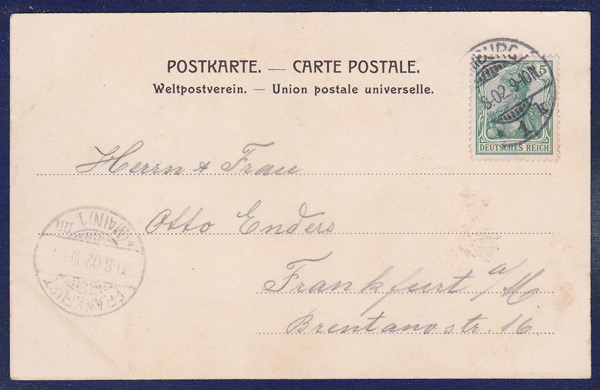 POSTKARTE. — CARTE POSTALE.
Weltpostverein. — Union postale universelle.
BURG
8.02. 9-10N.
1.k
5
DEUTSCHES REICH
Herrn & Frau
Otto Enders
Frankfurt a/M
Brentanostr. 16
FRANKFURT
(MAIN) 1.
8.02